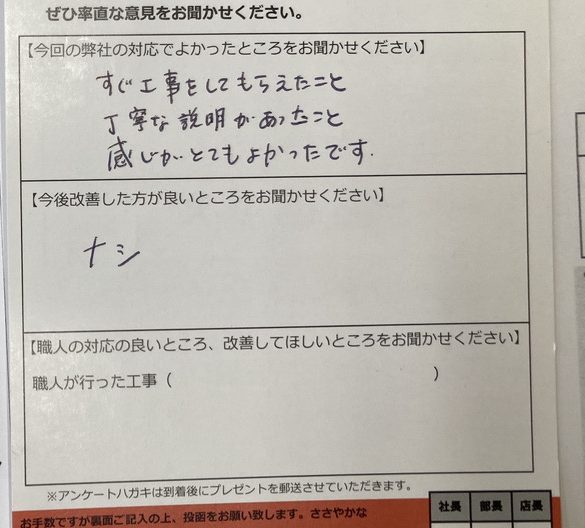 ぜひ率直な意見をお聞かせください。
【今回の弊社の対応でよかったところをお聞かせください】
すぐ工事をしてもらえたこと
丁寧な説明があったこと
感じがとてもよかったです.
【今後改善した方が良いところをお聞かせください】
ナシ
【職人の対応の良いところ、改善してほしいところをお聞かせください】
職人が行った工事（　　　　　　　　　　　　　　　）
※アンケートハガキは到着後にプレゼントを郵送させていただきます。
社長 部長 店長
お手数ですが裏面ご記入の上、投函をお願い致します。ささやかな